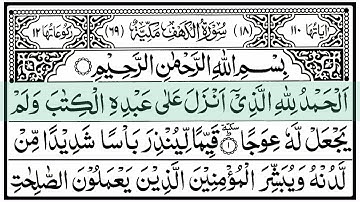 اٰیاتها ١١٠ (١٨) سُوْرَةُ الْكَهْفِ مَكِّيَّةٌ (٦٩) رکوعاتها ١٢
بِسْمِ اللّٰهِ الرَّحْمٰنِ الرَّحِيْمِ
اَلْحَمْدُ لِلّٰهِ الَّذِيْۤ اَنْزَلَ عَلٰى عَبْدِهِ الْكِتٰبَ وَلَمْ
يَجْعَلْ لَّهٗ عِوَجًا ١ قَيِّمًا لِّيُنْذِرَ بَاْسًا شَدِيْدًا مِّنْ
لَّدُنْهُ وَيُبَشِّرَ الْمُؤْمِنِيْنَ الَّذِيْنَ يَعْمَلُوْنَ الصّٰلِحٰتِ